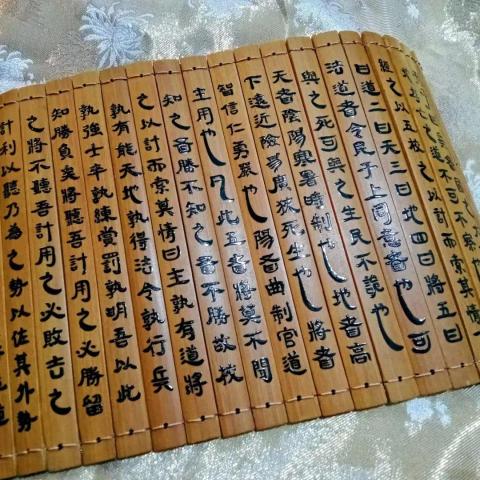 經之以五校之以計而索其情
曰道二曰天三曰地四曰將五曰
法道者令民于上同意者也可
與之死可與之生民不詭也
天者陰陽寒暑時制也地者高
下遠近險易廣狹死生也將者
智信仁勇嚴也者曲制官道
主用也凡此五者將莫不聞
知之者勝不知之者不勝故校
之以計而索其情曰主孰有道將
孰有能天地孰得法令孰行兵
孰強士卒孰練賞罰孰明吾以此
知勝負矣將聽吾計用之必勝留
之將不聽吾計用之必敗去之
計利以聽乃為之勢以佐其外勢